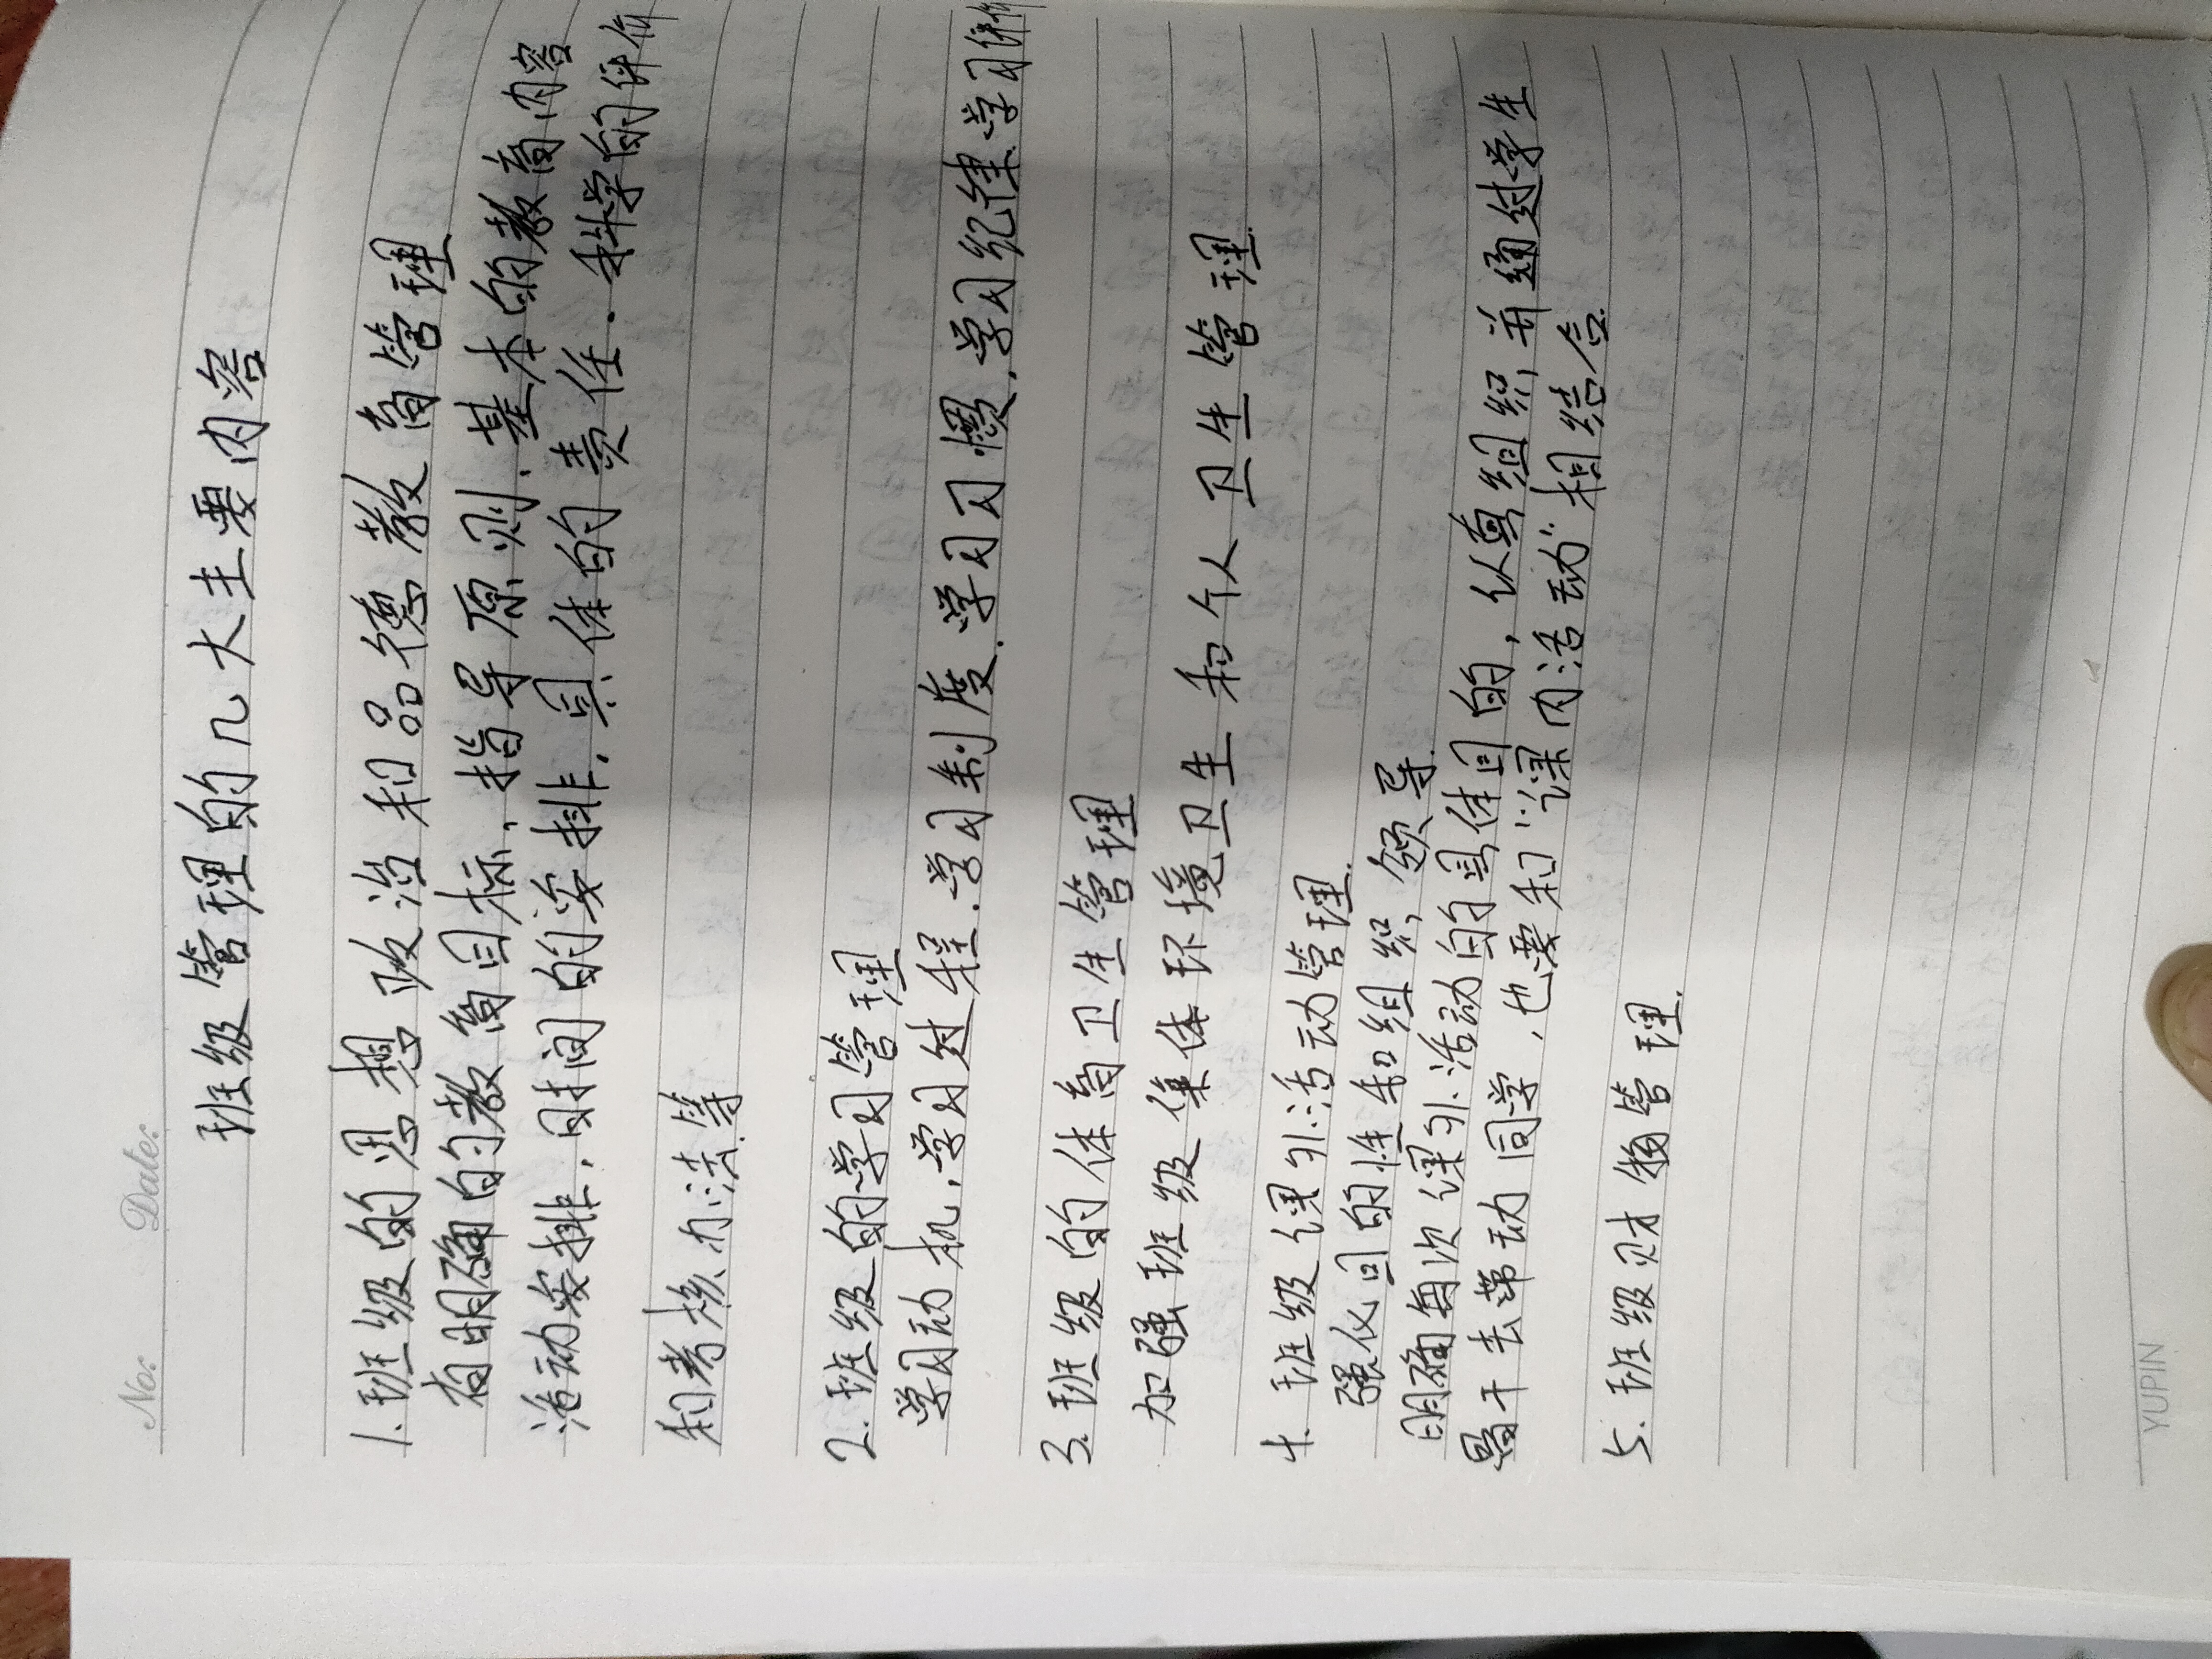 No:
Date:
班级管理的几大主要内容
1.班级的思想政治和品德教育管理
有明确的教育目标、指导原则、基本的教育内容
活动安排、时间的安排、具体的责任、科学的评价
和考核办法等
2.班级的学习管理
学习动机、学习过程、学习制度、学习习惯、学习纪律、学习评价
3.班级的体育卫生管理
加强班级集体环境卫生和个人卫生管理.
4.班级课外活动管理.
强化目的性和组织,领导.
明确每次课外活动的具体目的,认真组织,并通过学生
骨干去带动同学,也要和"课内活动"相结合.
5.班级财物管理.
YUPIN